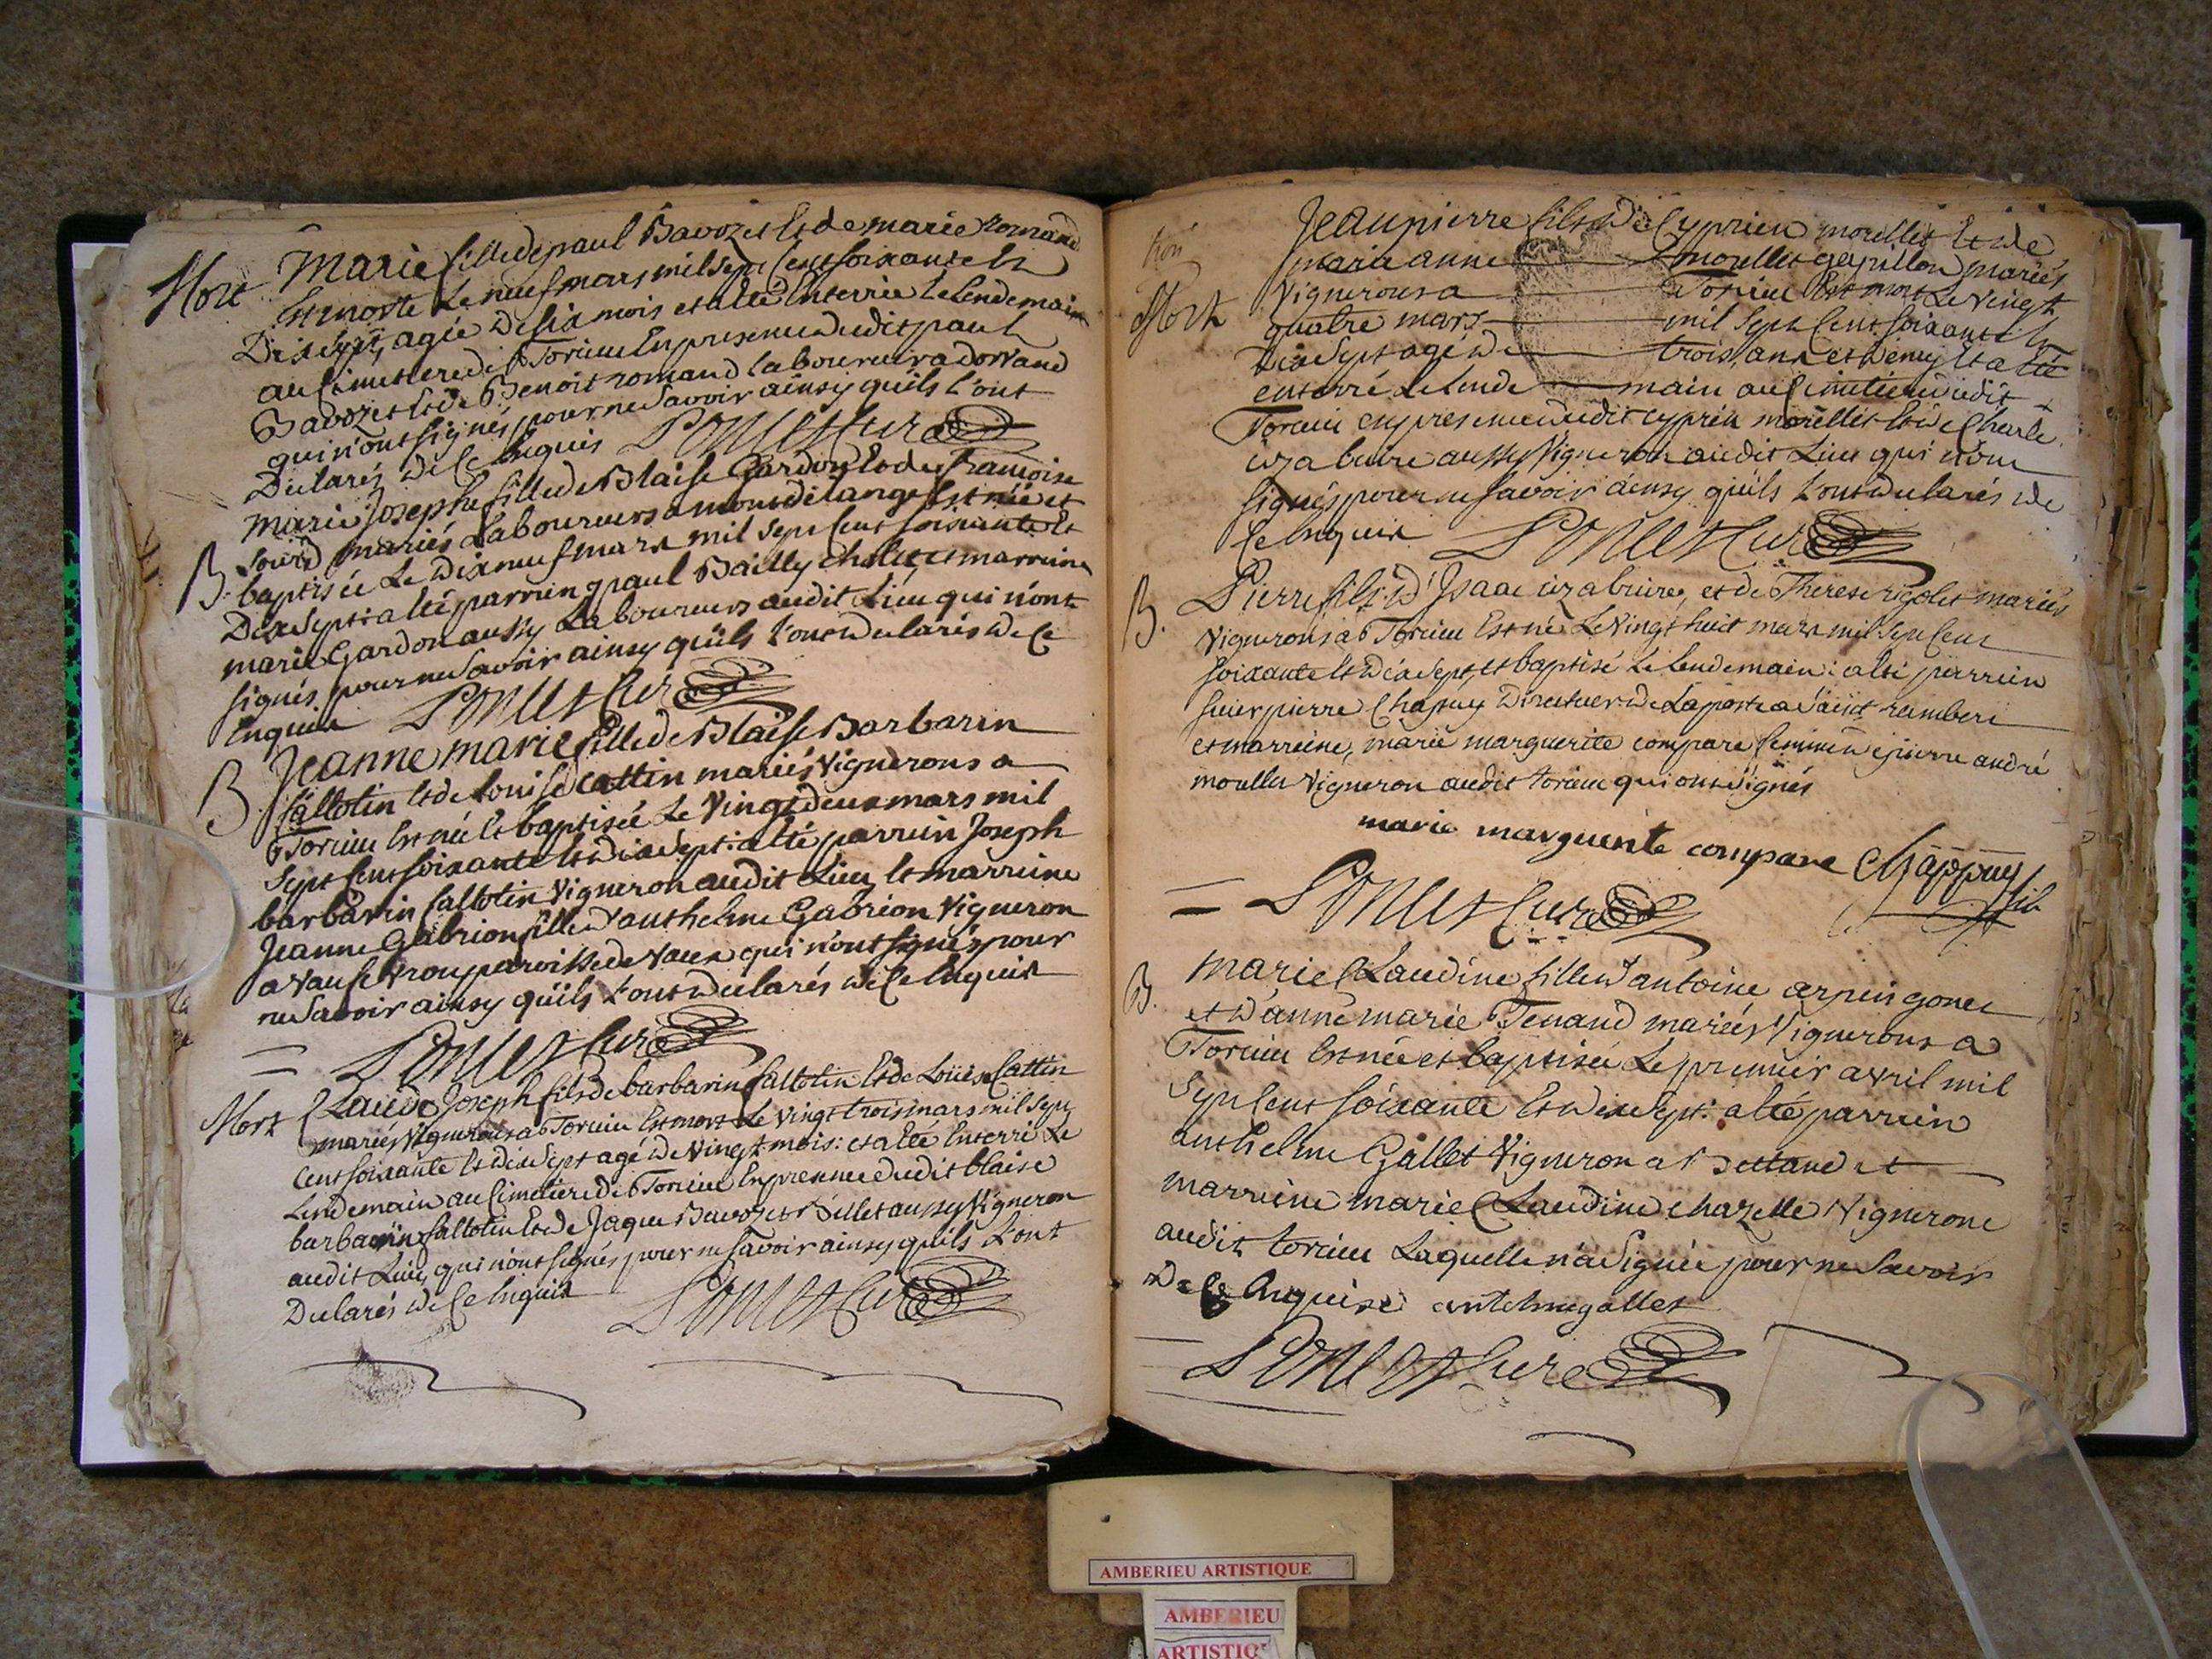 Mort Marie fille de paul Bavozet Et de marie romand
Est morte Le neuf mars mil Sept Cent soixante Et
Dix sept, agée de six mois et a Eté Enterrée Le lendemain
au Cimetiere de Torcieu En presence dudit paul
Bavozet Et de Benoit romand laboureur a dorvand
qui n'ont signés pour ne Savoir ainsy quils L'ont
Déclarés de Ce Enquis Poncet Curé
Marie Josephe fille de Blaise Gardon Et de francoise
mariés Laboureurs a montdelange Est née et
B. baptisée Le Dix neuf mars mil Sept Cent soixante Et
Dix sept: a Eté parrin paul Bailly et marreine
marie Gardon aussy Laboureurs audit Lieu qui n'ont
signés pour ne Savoir ainsy quils L'ont Declarés de Ce
Enquis Poncet Curé
B Jeanne marie fille de Blaise Barbarin
Callotin Et de Louise Cattin mariés Vignerons a
Torcieu Est née Et baptisée Le Vingt deux mars mil
Sept Cent soixante Et dix sept: a Eté parrein Joseph
barbarin Callotin Vigneron audit Lieu Et marreine
Jeanne Gabrion fille d'anthelme Gabrion Vigneron
a Vaux paroisse de Vaux qui n'ont signés pour
ne Savoir ainsy quils L'ont Declarés de Ce Enquis
Poncet Curé
Mort Claude Joseph fils de barbarin Callotin Et de Loüise Cattin
mariés Vignerons a Torcieu Est mort Le Vingt trois mars mil Sept
Cent soixante Et dix Sept agé de Vingt mois: et a Eté Enterré Le
Lendemain au Cimetiere de Torcieu En presence dudit blaise
barbarin Callotin Et de Jaque Bavozet aussy Vigneron
audit Lieu, qui n'ont signés pour ne Savoir ainsy quils L'ont
Declarés de Ce Enquis Poncet Curé
Jean pierre fils de Cyprien morellet Et de
marie anne morellet gapillon mariés
Mort Vignerons a Torcieu Est mort Le Vingt
quatre mars mil Sept Cent soixante Et
Dix Sept agé de trois ans et demy Et a Eté
enterré Le Lende main au Cimetiere dudit
Torcieu en presence dudit cyprien morellet Et de Charle
aussy Vigneron audit Lieu qui n'ont
signés pour ne Savoir ainsy quils L'ont Declarés de
Ce Enquis Poncet Curé
B. Pierre fils d'Isaac et de Therese rigolet mariés
Vignerons a Torcieu Est né Le Vingt huit mars mil Sept Cent
soixante Et dix Sept, Et baptisé Le Lendemain: a Eté parrein
sieur pierre Chapuy Directeur de La poste a saint rambert
et marreine, marie marguerite compare femme de pierre andré
morellet Vigneron audit torcieu qui ont signés
marie marguerite compare Chappuy fils
Poncet Curé
B. marie Claudine fille d'antoine arpin gonet
et d'anne marie Tenand mariés Vignerons a
Torcieu Est née et baptisée Le premier avril mil
Sept Cent soixante Et dix Sept: a Eté parrein
anthelme Gallet Vigneron a Bettand et
marreine marie Claudine chazelle Vignerone
audit torcieu Laquelle n'a Signée pour ne Savoir
De Ce Enquise antelme galles
Poncet Curé
AMBERIEU ARTISTIQUE
AMBERIEU
ARTISTIQ